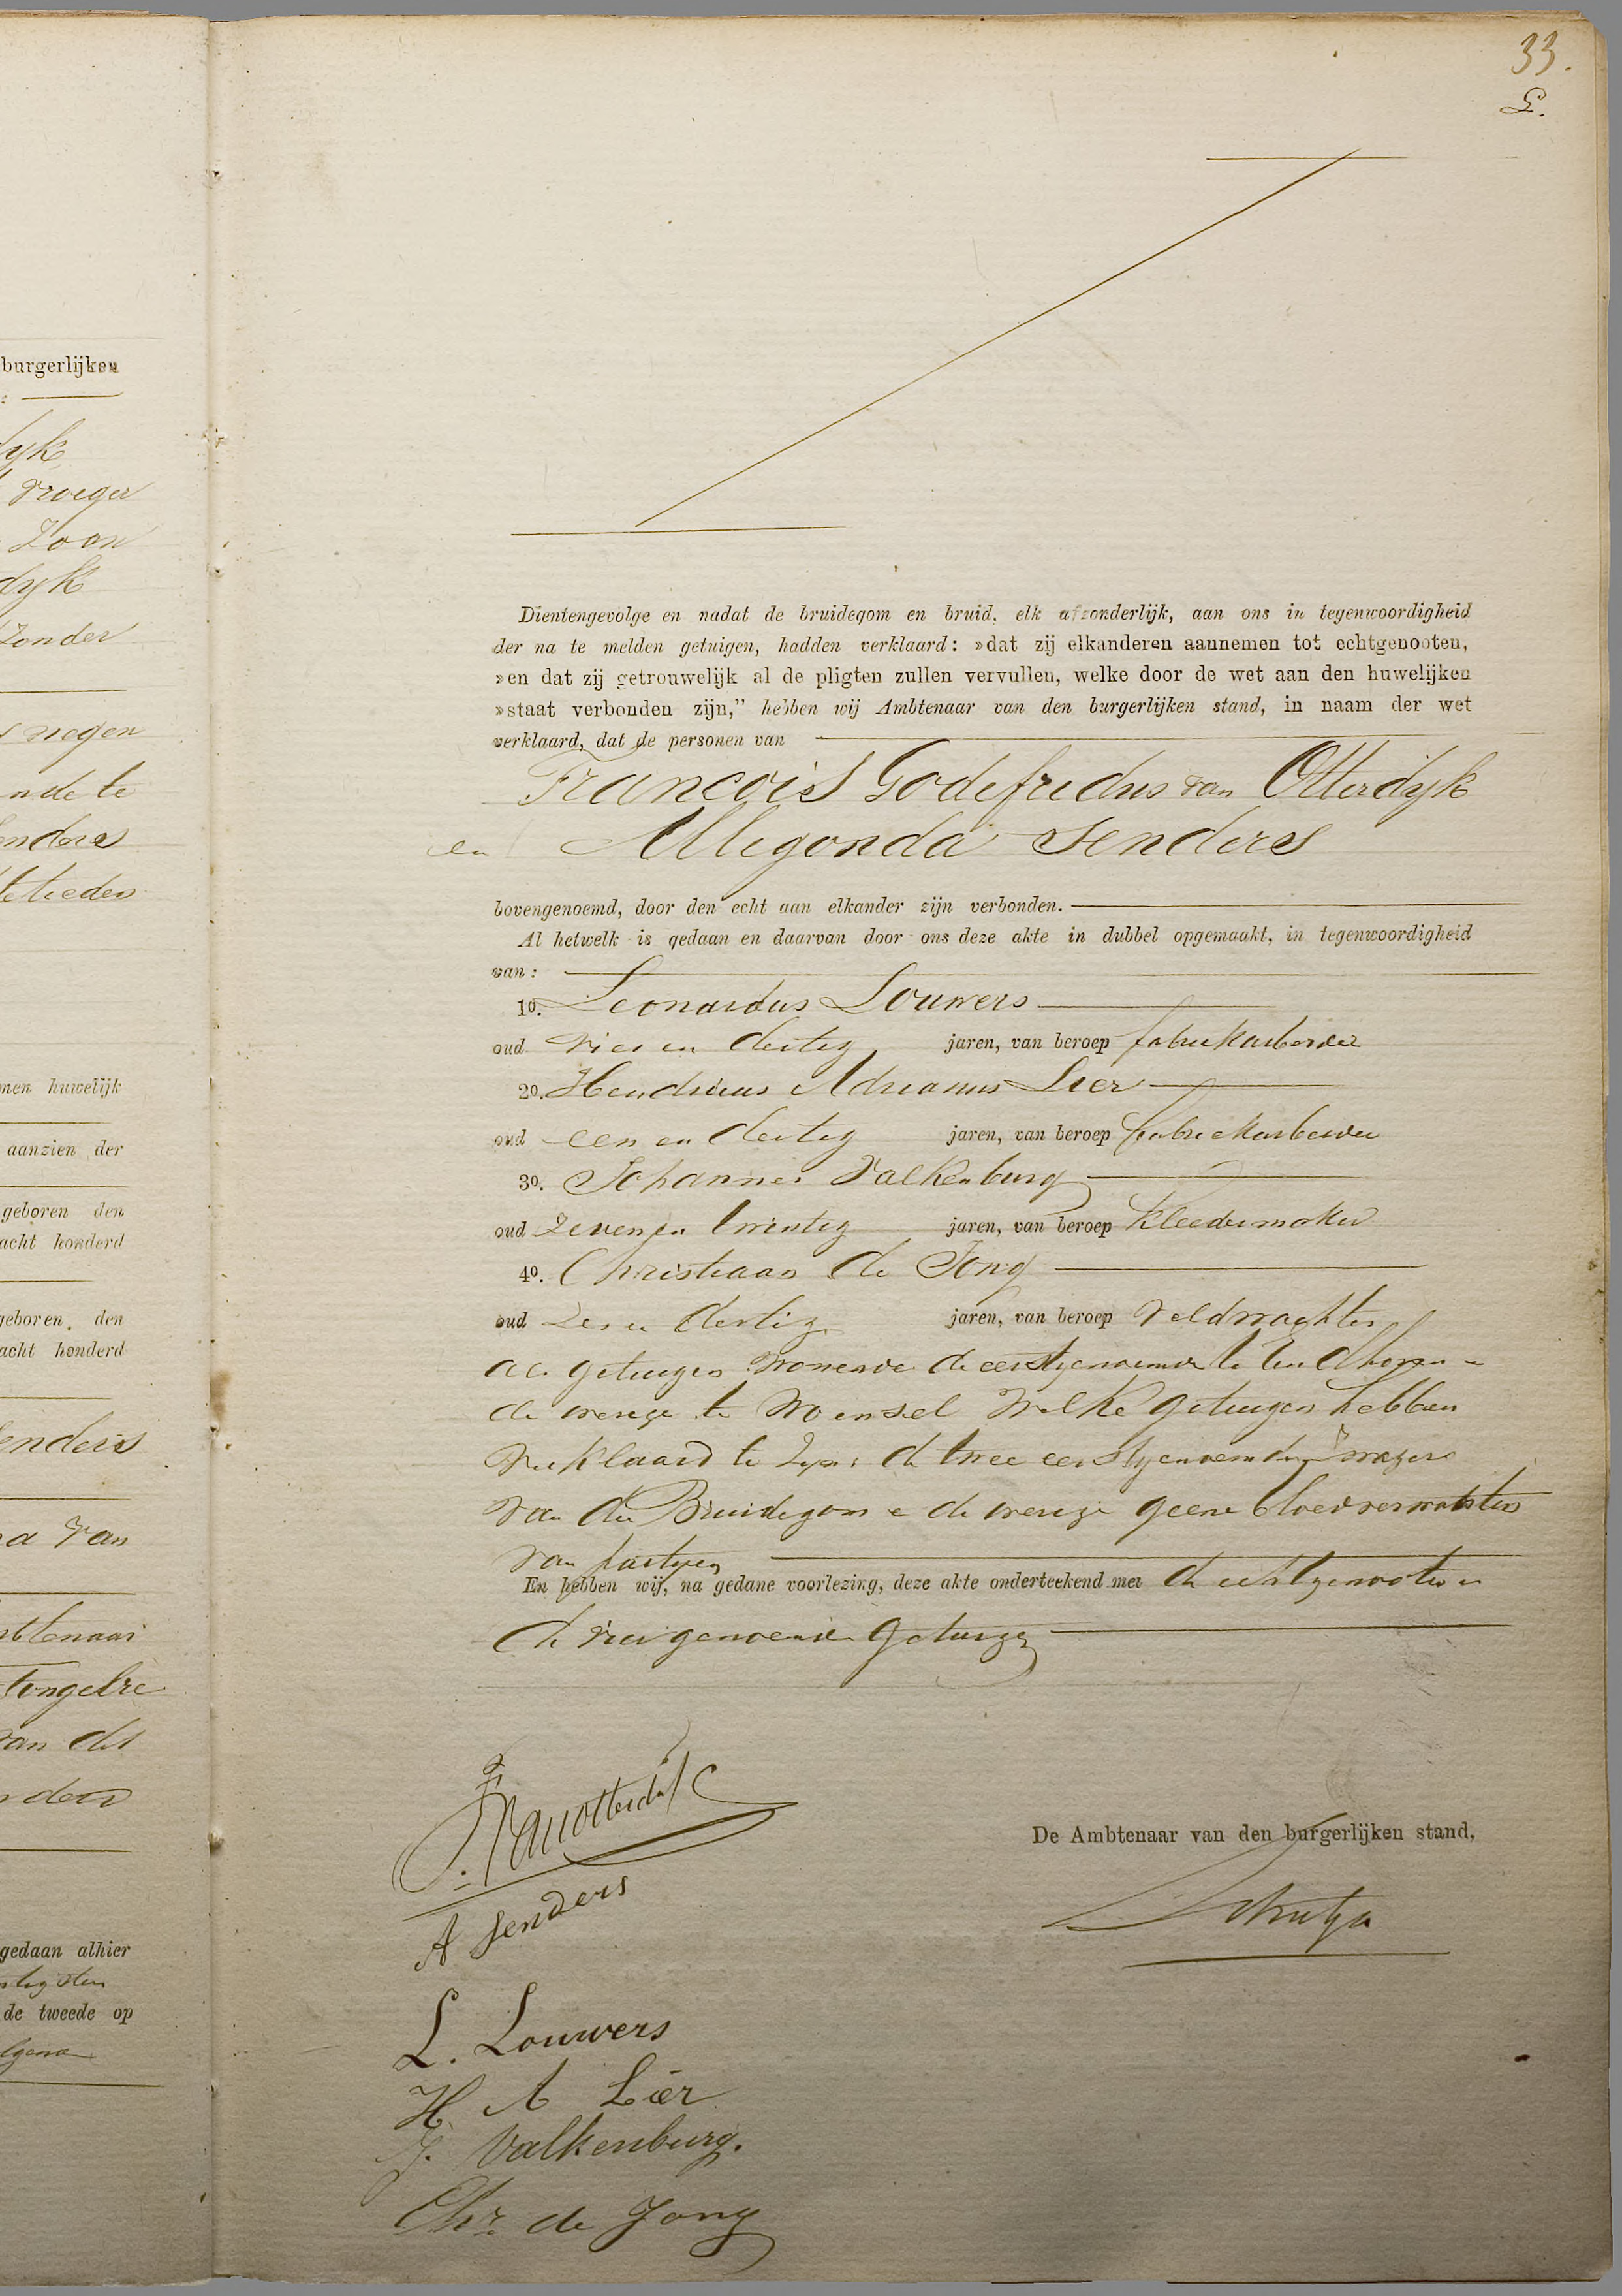 burgerlijken
dyk
vroeger
Zoon
dyk
Zonder
negen
nde te
enders
lieden
men huwelijk
aanzien der
geboren den
acht honderd
geboren. den
acht honderd
enders
na van
btenaar
Tongelre
van de
nders
gedaan alhier
de tweede op
33.
L.
Dientengevolge en nadat de bruidegom en bruid, elk afzonderlijk, aan ons in tegenwoordigheid
der na te melden getuigen, hadden verklaard: »dat zij elkanderen aannemen tot echtgenooten,
»en dat zij getrouwelijk al de pligten zullen vervullen, welke door de wet aan den huwelijken
»staat verbonden zijn,” hebben wij Ambtenaar van den burgerlijken stand, in naam der wet
verklaard, dat de personen van
Francois Godefredus van Otterdyk
en Allegonda Senders
bovengenoemd, door den echt aan elkander zijn verbonden.
Al hetwelk is gedaan en daarvan door ons deze akte in dubbel opgemaakt, in tegenwoordigheid
van:
1o. Leonardus Louwers
oud vier en dertig jaren, van beroep fabriekarbeider
2o. Hendricus Adrianus Lier
oud een en dertig jaren, van beroep fabriekarbeider
3o. Johannes Valkenburg
oud Zeven en twintig jaren, van beroep Kleedermaker
4o. Christiaan de Jong
oud Zes en dertig jaren, van beroep Veldwachter
als getuigen wonende de eerstgenoemde te Eindhoven en
de overige te Woensel Welke getuigen hebben
verklaard te zyn: de twee eerstgenoemden Zwagers
van den Bruidegom en de overige geene bloedverwanten
van partyen
En hebben wij, na gedane voorlezing, deze akte onderteekend met de echtgenooten en
de vier genoemde getuigen
F. v an otterdijk
A Senders
De Ambtenaar van den burgerlijken stand,
L. Louwers
H. A Liër
J. Valkenburg.
Chr. de Jong